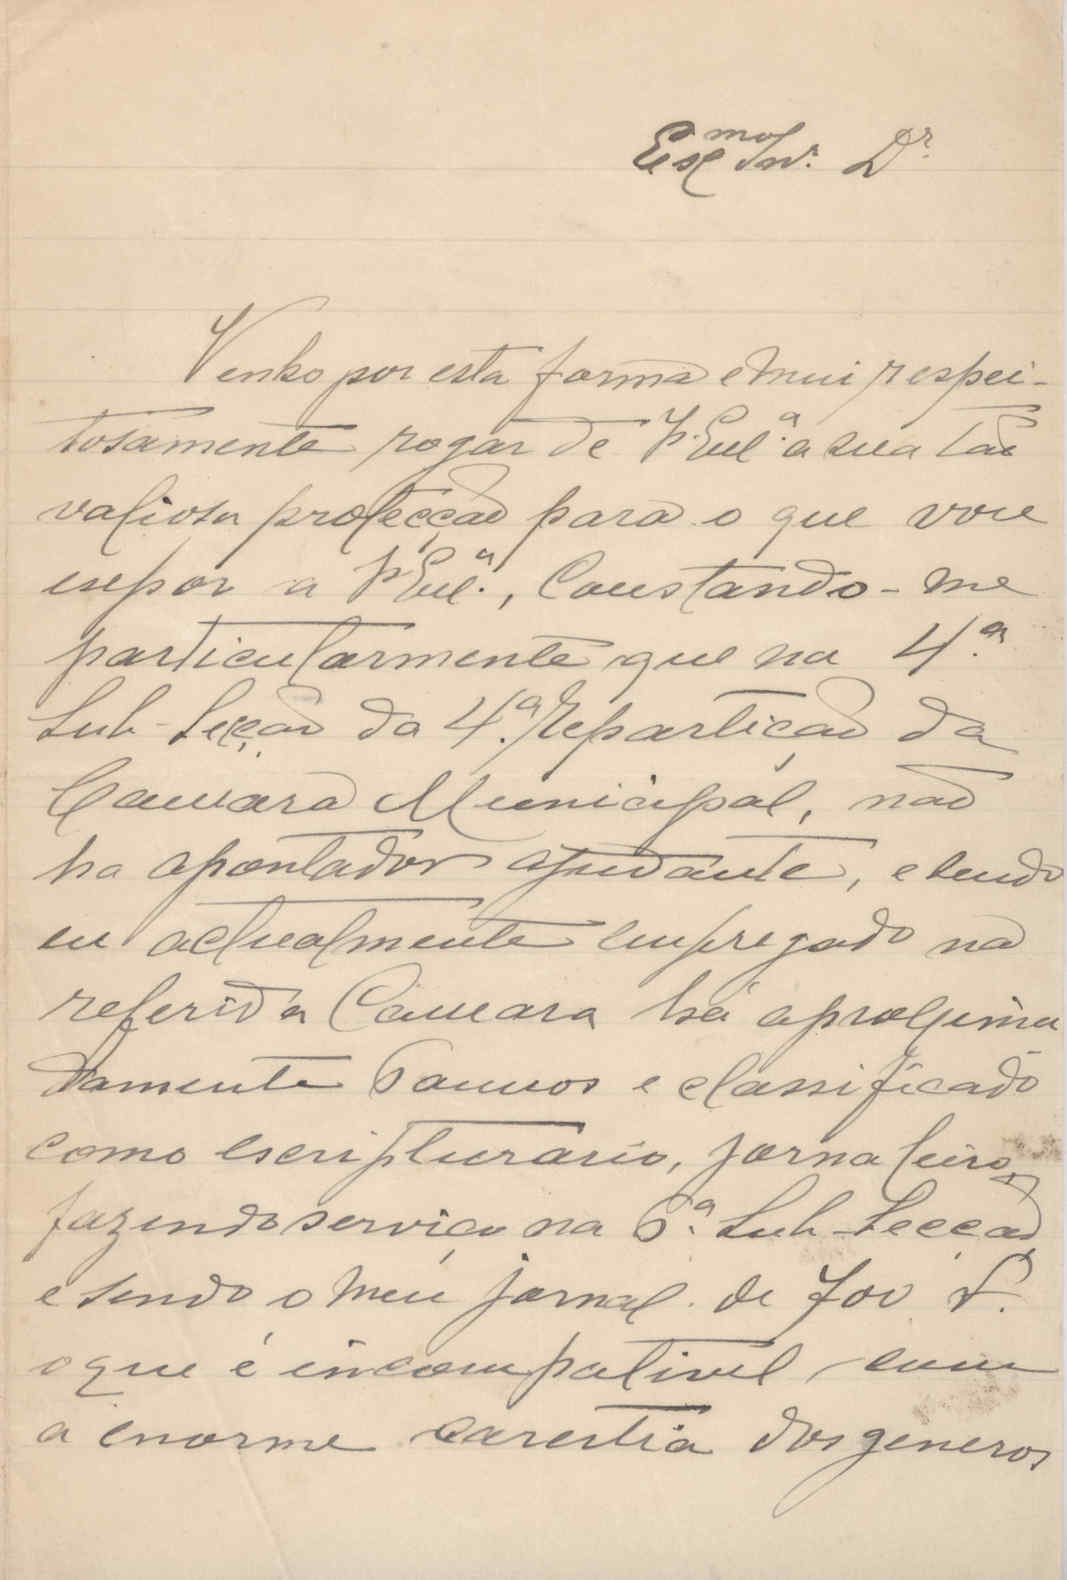 Ex.mo Snr. Dr.
Venho por esta forma e mui respei-
tosamente rogar de V. Ex.ª a sua tão
valiosa protecção para o que vou
expôr a V. Ex.ª, Constando-me
particularmente que na 4.ª
Sub-Secção da 4.ª Repartição da
Camara Municipal, não
ha apontador ajudante, e sendo
eu actualmente empregado na
referida Camara há aproxima
damente 6 annos e classificado
como escripturario, jornaleiro,
fazendo serviço na 6.ª Sub-Secção
e sendo o meu jornal de 700 r.
o que é incompativel com
a enorme carestia dos generos